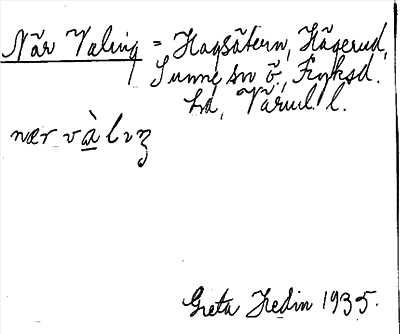 När Valinq = Hagsätern, Hågerud,
Sunne sn ö., Fryksd.
hd, Värml. l.
nær vàlıŋ
Greta Hedin 1935.